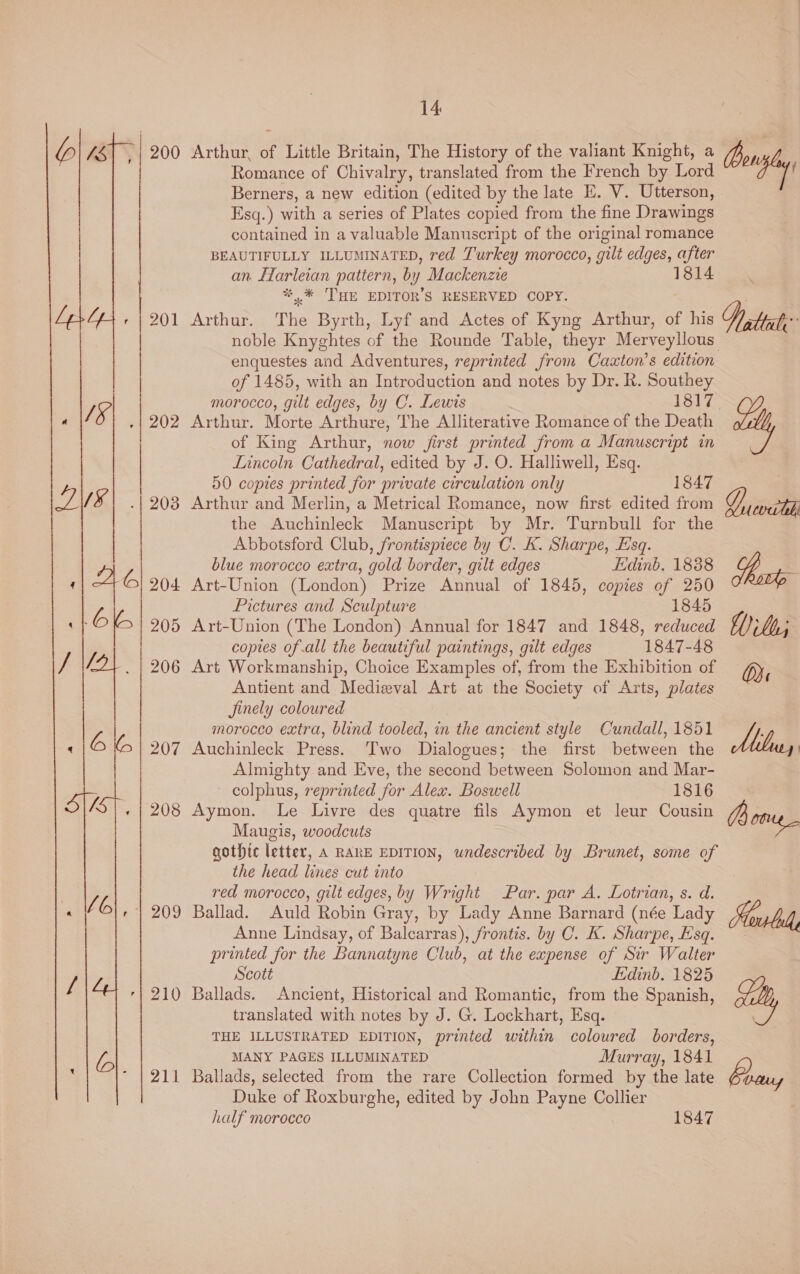 14
6 15 200 Arthur, of Little Britain, The History of the valiant Knight, a
Romance of Chivalry, translated from the French by Lord
Berners, a new edition (edited by the late E. V. Utterson,
Esq.) with a series of Plates copied from the fine Drawings
contained in a valuable Manuscript of the original romance
BEAUTIFULLY ILLUMINATED, red Turkey morocco, gilt edges, after
an Harleian pattern, by Mackenzie 1814
*** THE EDITOR'S RESERVED COPY.
4 4 201 Arthur. The Byrth, Lyf and Actes of Kyng Arthur, of his
noble Knyghtes of the Rounde Table, theyr Merveyllous
enquestes and Adventures, reprinted from Caxton's edition
of 1485, with an Introduction and notes by Dr. R. Southey
morocco, gilt edges, by C. Lewis 1817
18 202 Arthur. Morte Arthure, The Alliterative Romance of the Death Lilly
of King Arthur, now first printed from a Manuscript in
Lincoln Cathedral, edited by J. O. Halliwell, Esq.
50 copies printed for private circulation only 1847
2 18 203 Arthur and Merlin, a Metrical Romance, now first edited from
the Auchinleck Manuscript by Mr. Turnbull for the
Abbotsford Club, frontispiece by C. K. Sharpe, Esq.
blue morocco extra, gold border, gilt edges Edinb. 1838
2 6 204 Art-Union (London) Prize Annual of 1845, copies of 250
Pictures and Sculpture 1845
6 6 205 Art-Union (The London) Annual for 1847 and 1848, reduced Willis
copies of all the beautiful paintings, gilt edges 1847-48
1 12 206 Art Workmanship, Choice Examples of, from the Exhibition of Do.
Antient and Mediæval Art at the Society of Arts, plates
finely coloured
morocco extra, blind tooled, in the ancient style Cundall, 1851
6 6 207 Auchinleck Press. Two Dialogues; the first between the Milnes
Almighty and Eve, the second between Solomon and Mar-
colphus, reprinted for Alex. Boswell 1816
5 15 208 Aymon. Le Livre des quatre fils Aymon et leur Cousin Boone
Maugis, woodcuts
gothic letter, A RARE EDITION, undescribed by Brunet, some of
the head lines cut into
red morocco, gilt edges, by Wright Par. par A. Lotrian, s. d.
16 209 Ballad. Auld Robin Gray, by Lady Anne Barnard (née Lady
Anne Lindsay, of Balcarras), frontis. by C. K. Sharpe, Esq.
printed for the Bannatyne Club, at the expense of Sir Walter
Scott Edinb. 1825
1 4 210 Ballads. Ancient, Historical and Romantic, from the Spanish, Lilly
translated with notes by J. G. Lockhart, Esq.
THE ILLUSTRATED EDITION, printed within coloured borders,
MANY PAGES ILLUMINATED Murray, 1841
6 211 Ballads, selected from the rare Collection formed by the late Evans
Duke of Roxburghe, edited by John Payne Collier
half morocco 1847